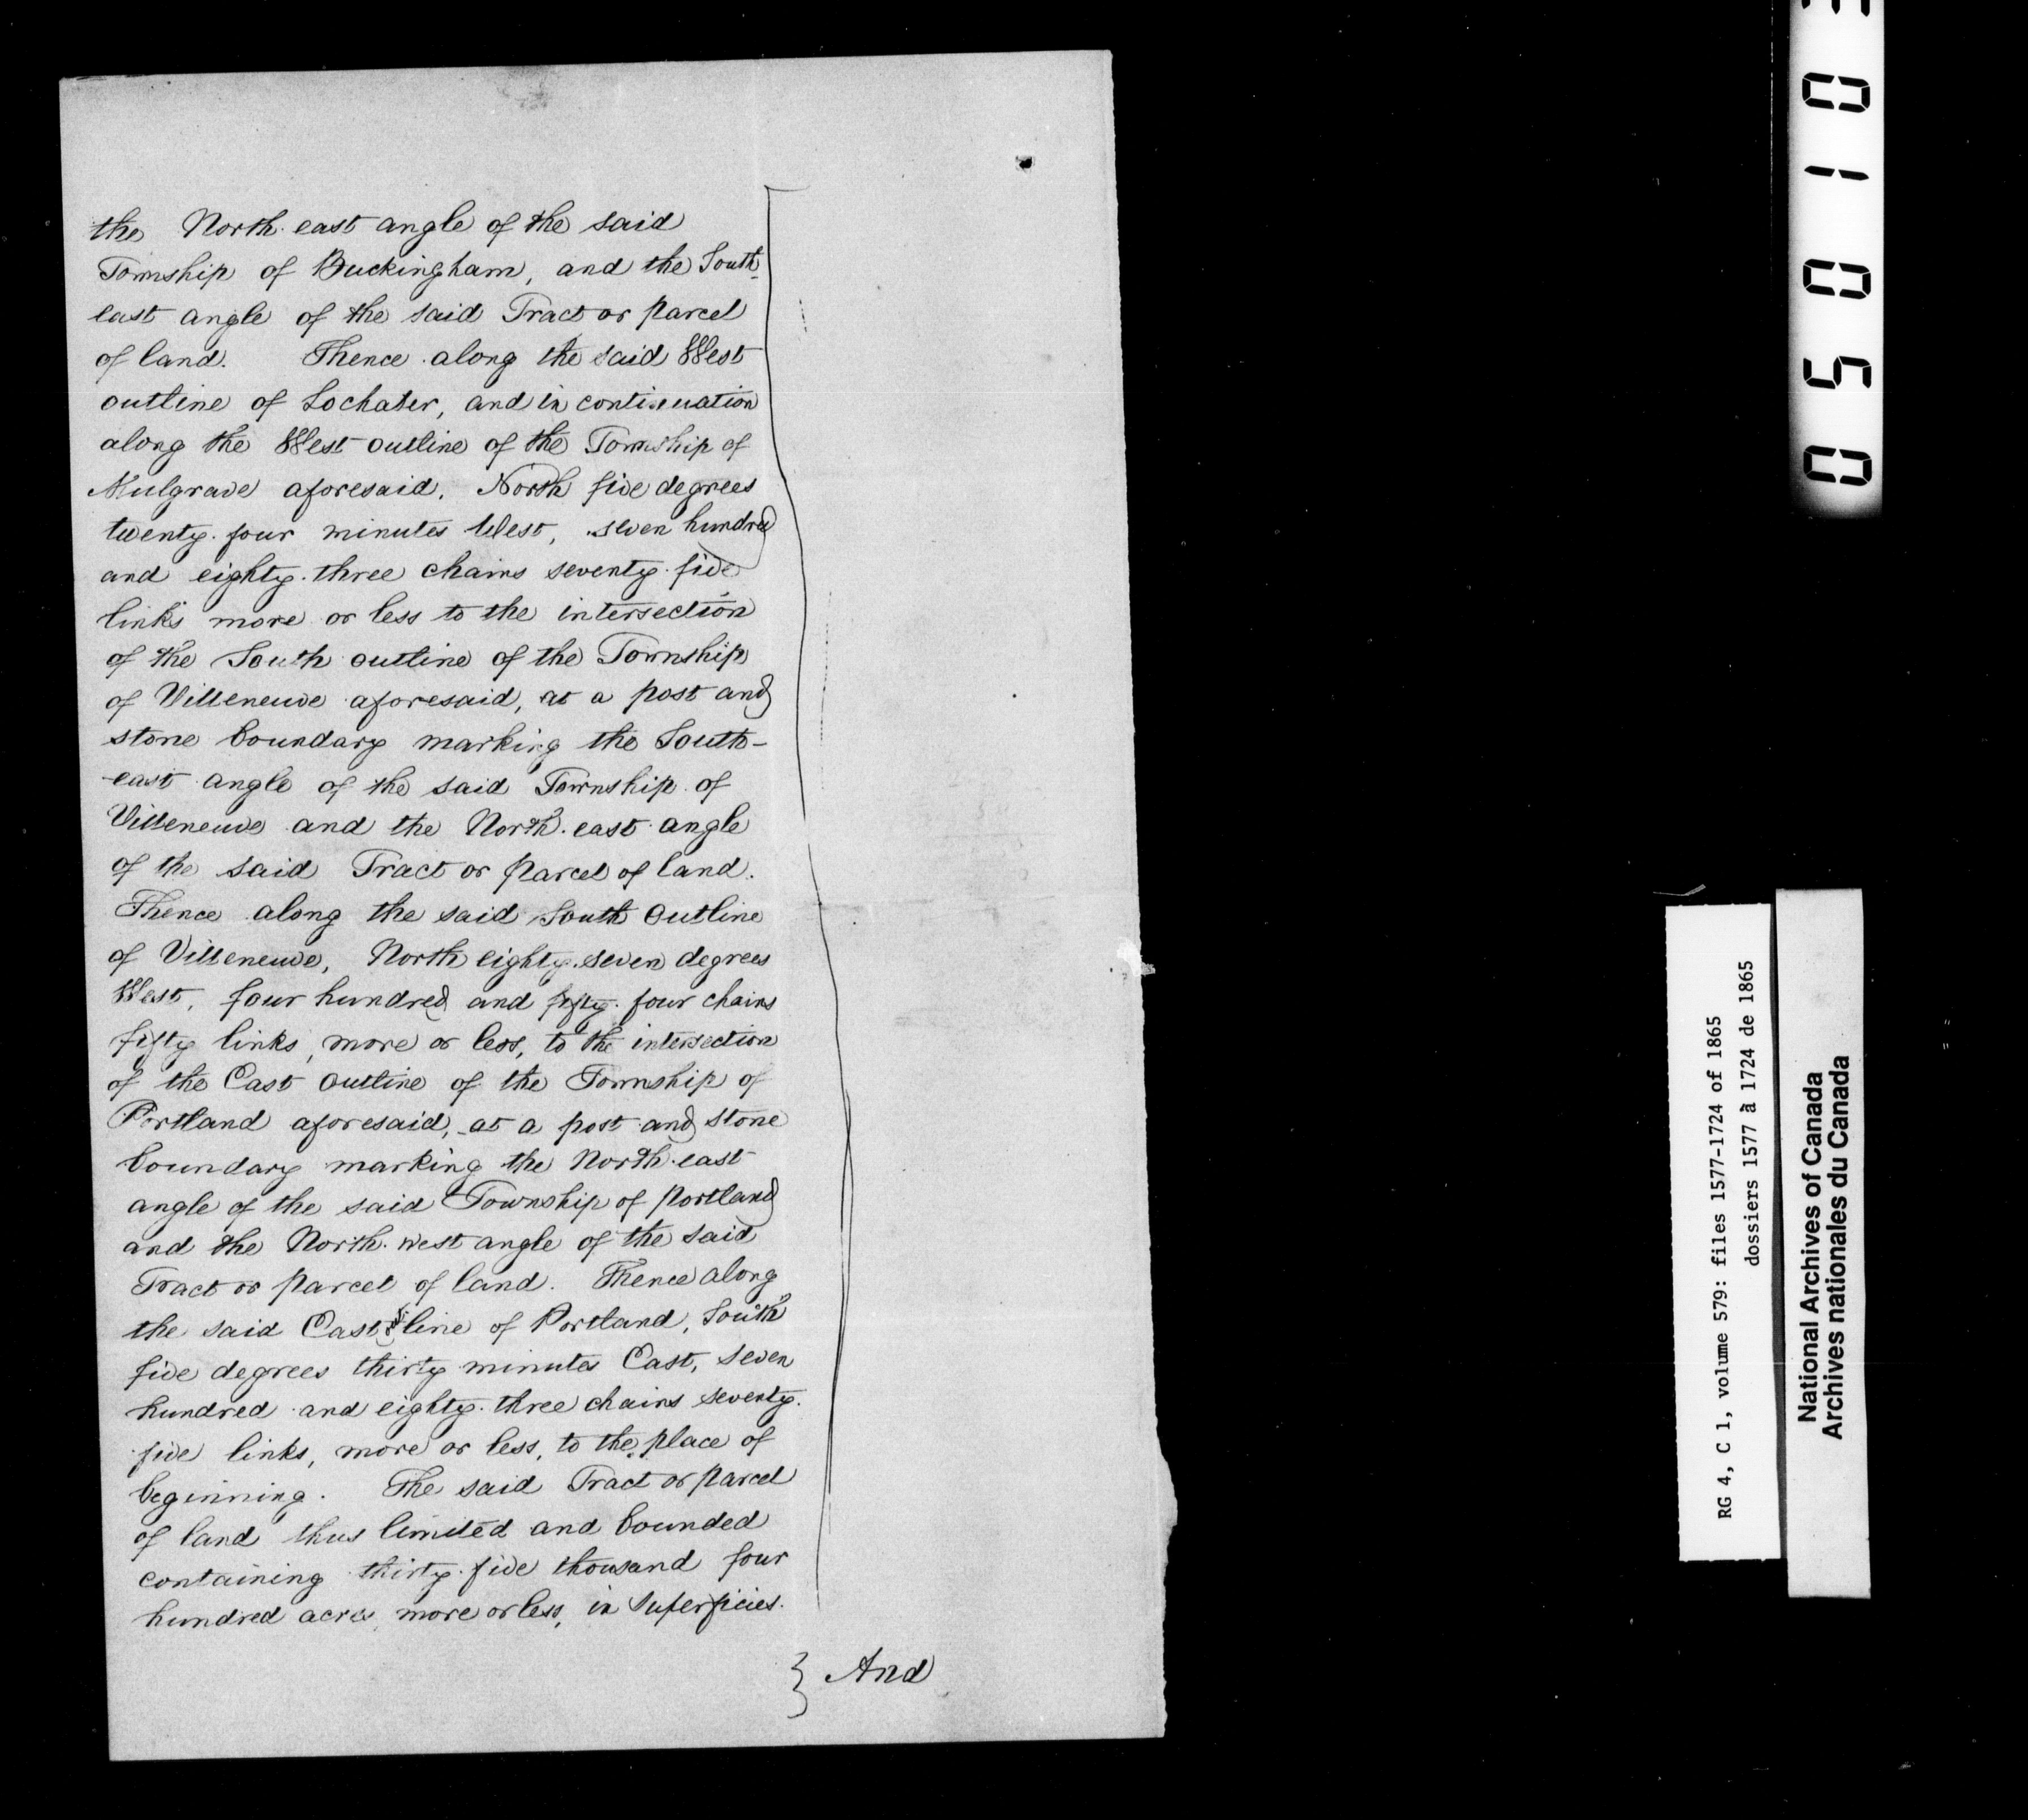 the North east angle of the said
Township of Buckingham, and the South-
east angle of the said Tract or parcel
of land. Thence along the said West
outline of Lochaber, and in continuation
along the West outline of the Township of
Mulgrave aforesaid, North five degrees
twenty four minutes West, seven hundred
and eighty three chains seventy five
links more or less to the intersection
of the South outline of the Township
of Villeneuve aforesaid, at a post and
stone boundary marking the South-
east angle of the said Township of
Villeneuve and the North east angle
of the said Tract or parcel of land.
Thence along the said South Outline
of Villeneuve, North eighty seven degrees
West, four hundred and fifty four chains
fifty links, more or less, to the intersection
of the East Outline of the Township of
Portland aforesaid, at a post and stone
boundary marking the North east
angle of the said Township of Portland
and the North west angle of the said
Tract or parcel of land. Thence along
the said East line of Portland, South
five degrees thirty minutes East, seven
hundred and eighty three chains seventy
five links, more or less, to the place of
beginning. The said Tract or parcel
of land thus limited and bounded
containing thirty five thousand four
hundred acres more or less, in Superficies.
} And
0 5 0 1 0
RG 4, C 1, volume 579: files 1577-1724 of 1865
dossiers 1577 à 1724 de 1865
National Archives of Canada
Archives nationales du Canada